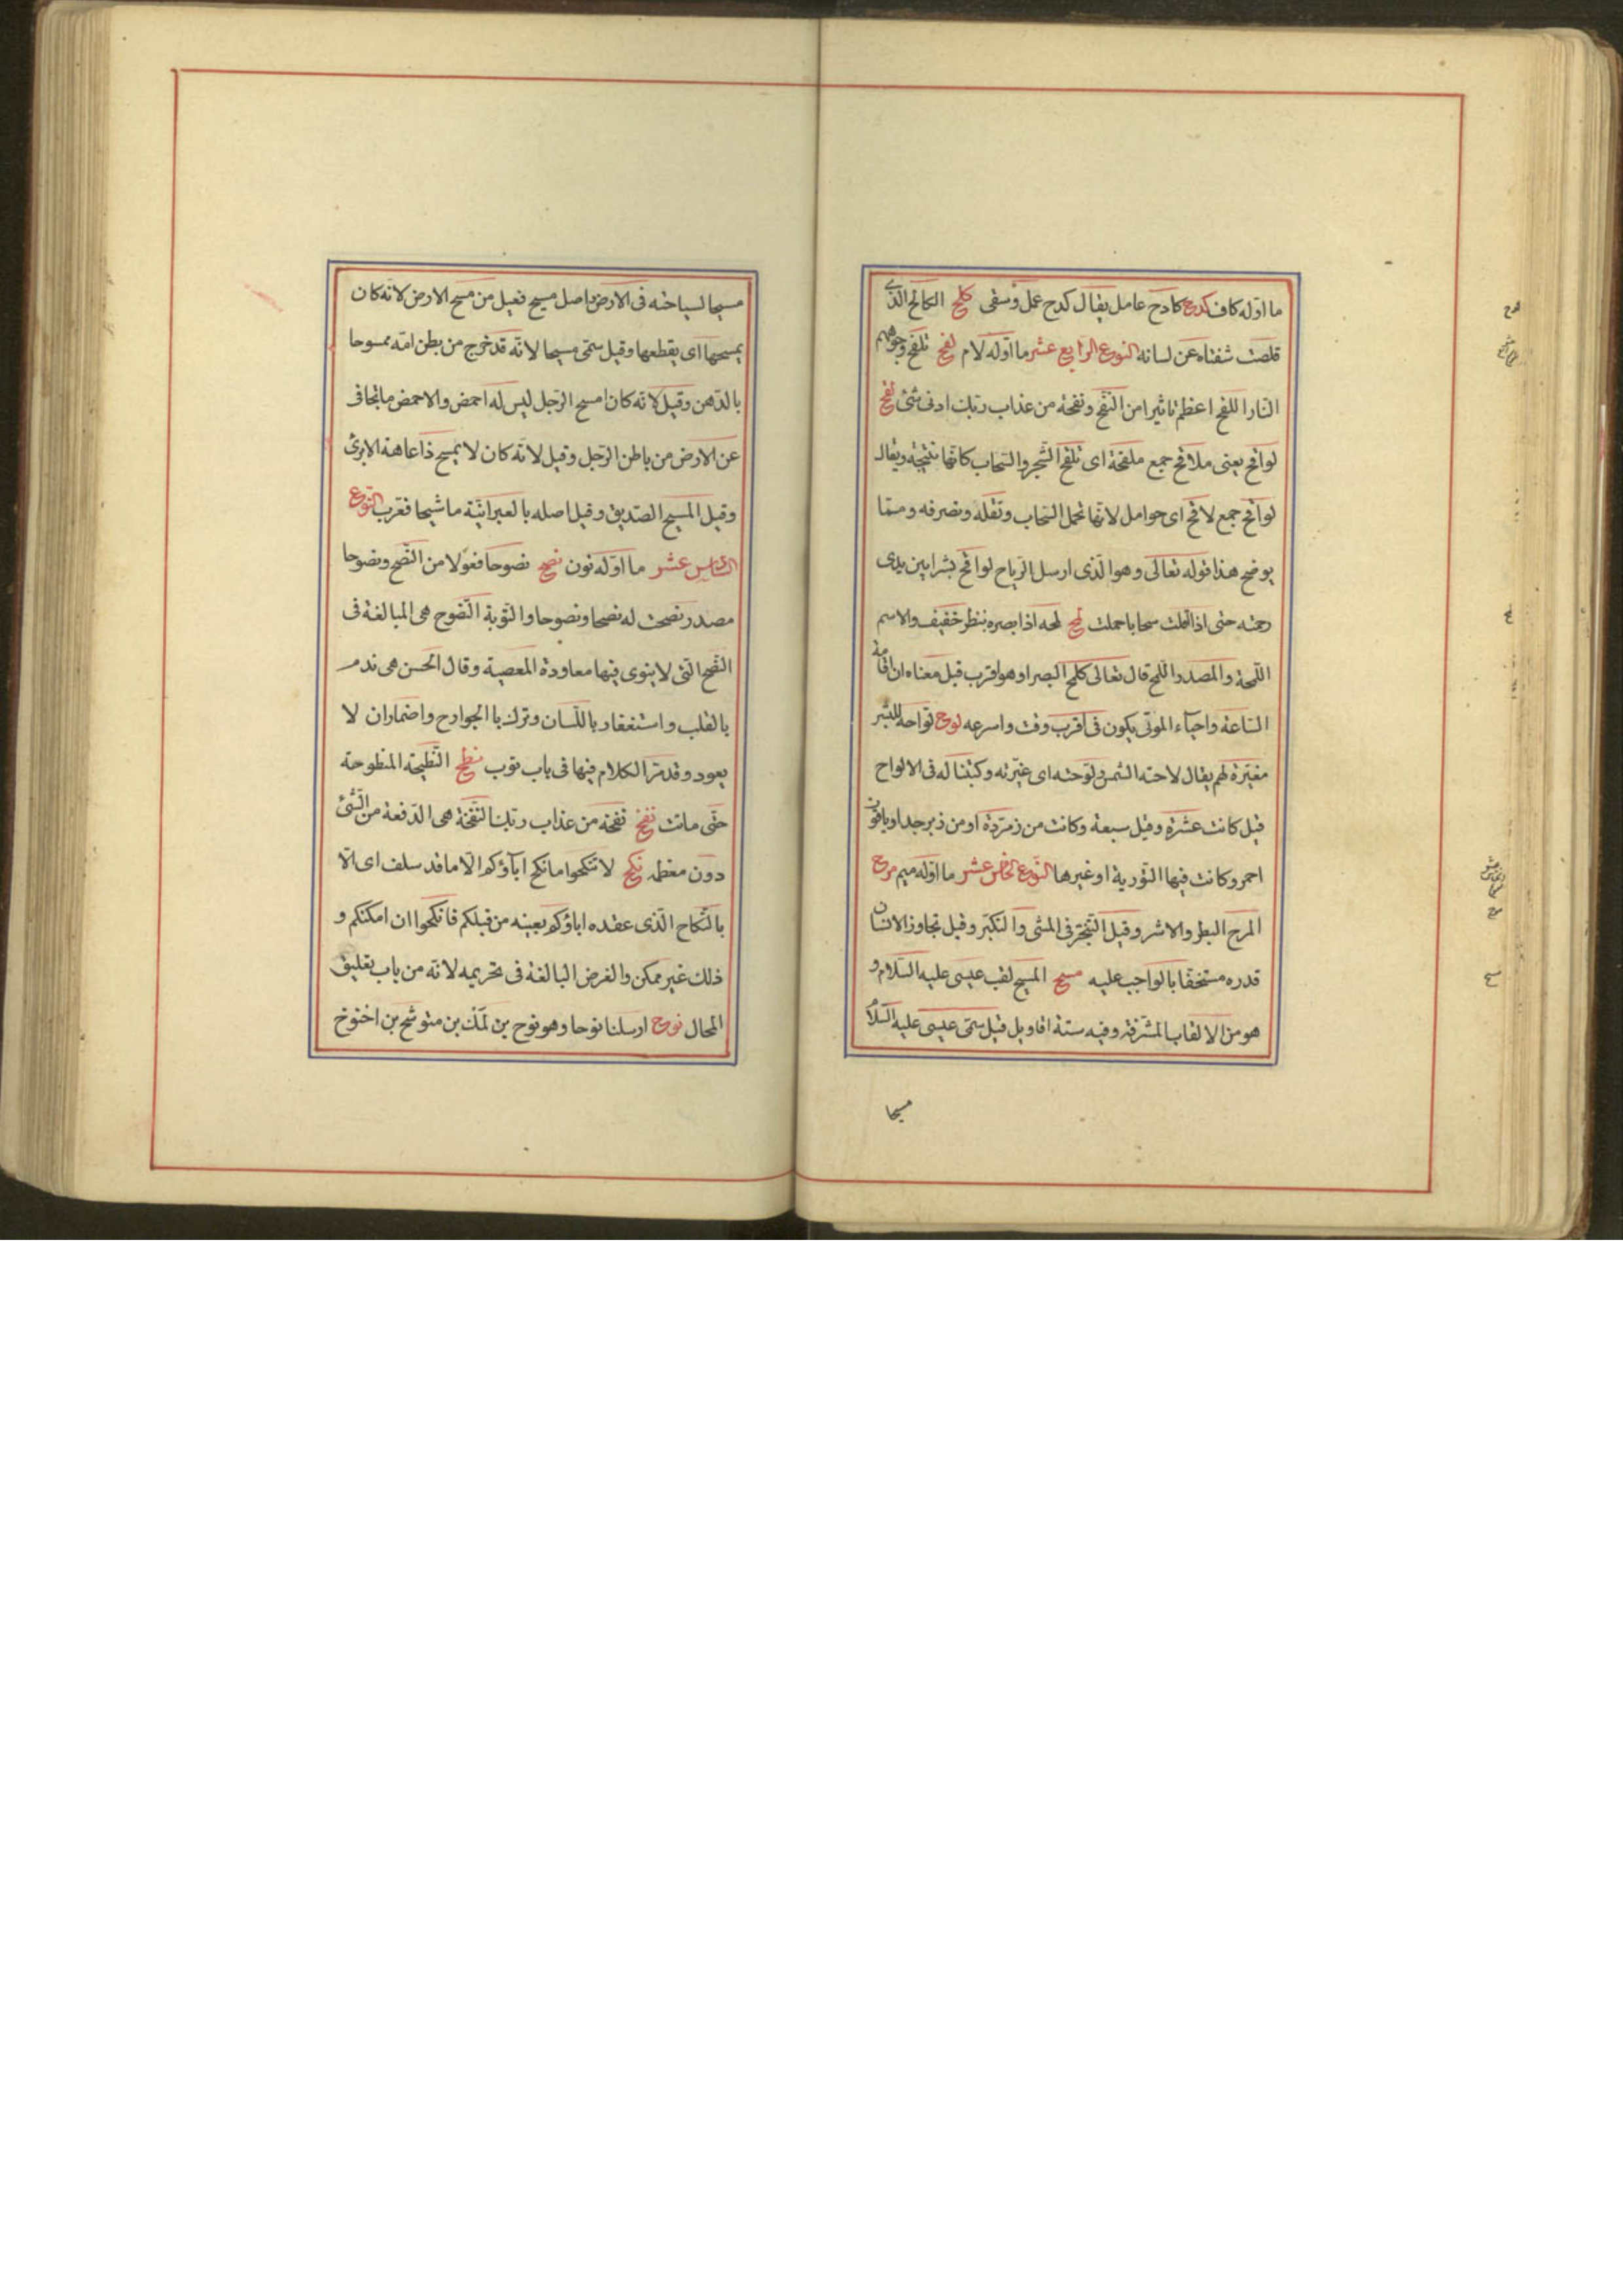 ما اوله كاف كدح كادح عامل يقال كدح عمل وسعى كلح الكالح الذى
قلصت شفتاه عن لسانه النوع الرابع عشر ما اوله لام لفح تلفح وجوههم
النار اللفح اعظم تاثيرا من النفح ونفحة من عذاب ربك ادنى شئ لقح
لواقح يعنى ملاقح جمع ملقحة اى تلقح الشجر والسحاب كانها نتيجة ويقال
لواقح جمع لاقح اى حوامل لانها تحمل السحاب وتقله وتصرفه ومما
يوضح هذا قوله تعالى وهو الذى ارسل الرياح لواقح بشرا بين يدى
رحمته حتى اذا اقلت سحابا حملت لمح لمحه اذا بصره بنظر خفيف والاسم
اللمحة والمصدر اللمح قال تعالى كلمح البصر او هو اقرب قيل معناه ان اقامة
الساعة واحياء الموتى يكون فى اقرب وقت واسرعه لوح لواحة للبشر
مغيرة لهم يقال لاحته الشمس ولوحته اى غيرته وكتبنا له فى الالواح
قيل كانت عشرة وقيل سبعة وكانت من زمردة او من زبرجد او ياقوت
احمر وكانت فيها التورية او غيرها النوع الخامس عشر ما اوله ميم مرح
المرح البطر والاشر وقيل التبختر فى المشى والتكبر وقيل تجاوز الانسان
قدره مستخفا بالواجب عليه مسح المسيح لقب عيسى عليه السلام و
هو من الالقاب المشرفة وفيه ستة اقاويل قيل سمى عيسى عليه السلام
مسيحا
مسيحا لسياحته فى الارض واصل مسيح فعيل من مسح الارض لانه كان
يمسحها اى يقطعها وقيل سمى مسيحا لانه قد خرج من بطن امه ممسوحا
بالدهن وقيل لانه كان امسح الرجل ليس له اخمص والاخمص ما تجافى
عن الارض من باطن الرجل وقيل لانه كان لا يمسح ذا عاهة الا برئ
وقيل المسيح الصديق وقيل اصله بالعبرانية ماشيحا فعرب النوع
السادس عشر ما اوله نون نصح نصوحا فعولا من النصح ونصوحا
مصدر نصحت له نصحا ونصوحا والتوبة النصوح هى المبالغة فى
النصح التى لا ينوى فيها معاودة المعصية وقال الحسن هى ندم
بالقلب واستغفار باللسان وترك با الجوارح واضمار ان لا
يعود وقد مر الكلام فيها فى باب توب نطح النطيحة المنطوحة
حتى ماتت نفح نفحة من عذاب ربك النفحة هى الدفعة من الشئ
دون معظمه نكح لا تنكحوا ما نكح اباؤكم الا ما قد سلف اى الا
بالنكاح الذى عقده اباؤكم بعينه من قبلكم فانكحوا ان امكنكم و
ذلك غير ممكن والغرض البالغة فى تحريمه لانه من باب تعليق
المحال نوح ارسلنا نوحا وهو نوح بن لمك بن متوشح بن اخنوخ